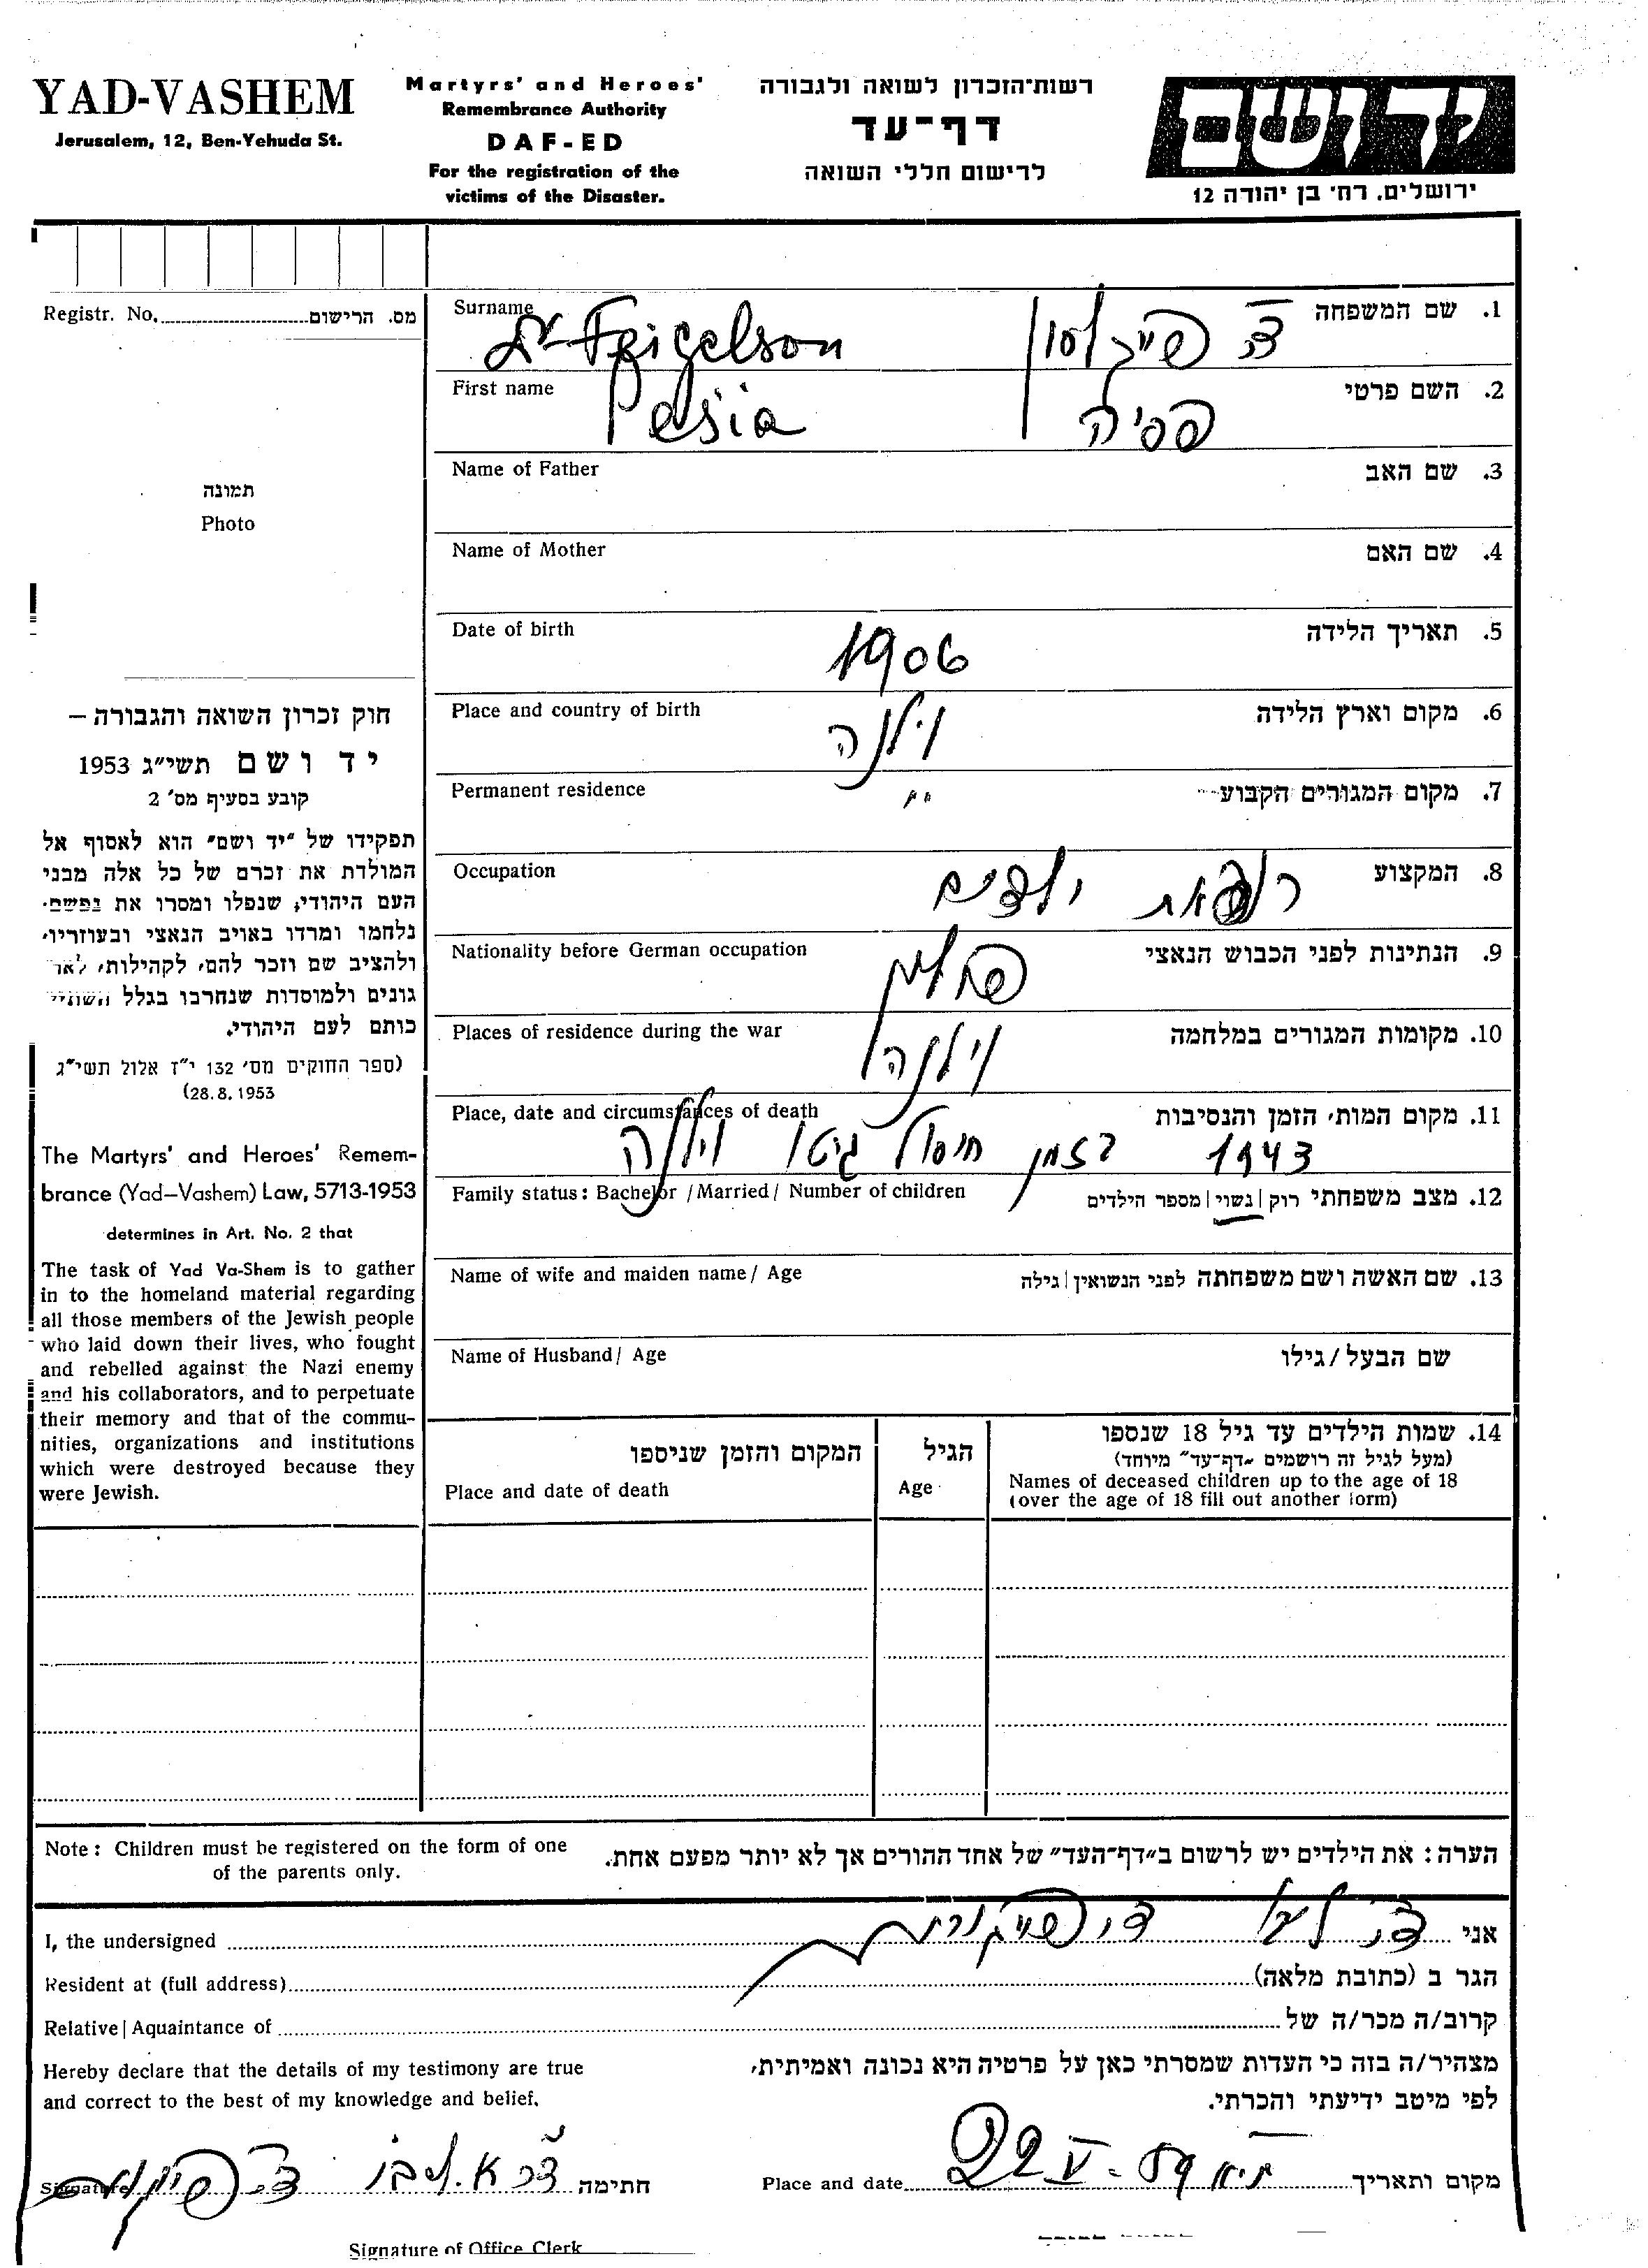 YAD-VASHEM
Jerusalem, 12, Ben-Yehuda St.
Martyrs' and Heroes'
Remembrance Authority
DAF-ED
For the registration of the
victims of the Disaster.
רשות־הזכרון לשואה ולגבורה
דף־עד
לרישום חללי השואה
יד ושם
ירושלים. רח' בן יהודה 12
Registr. No. מס. הרישום
תמונה
Photo
חוק זכרון השואה והגבורה –
יד ושם תשי״ג 1953
קובע בסעיף מס' 2
תפקידו של "יד ושם" הוא לאסוף אל
המולדת את זכרם של כל אלה מבני
העם היהודי, שנפלו ומסרו את נפשם,
נלחמו ומרדו באויב הנאצי ובעוזריו,
ולהציב שם וזכר להם, לקהילות, לאר
גונים ולמוסדות שנחרבו בגלל השתיי
כותם לעם היהודי.
(ספר החוקים מס' 132 י״ז אלול תשי״ג
28.8.1953)
The Martyrs' and Heroes' Remem-
brance (Yad–Vashem) Law, 5713-1953
determines in Art. No. 2 that
The task of Yad Va-Shem is to gather
in to the homeland material regarding
all those members of the Jewish people
who laid down their lives, who fought
and rebelled against the Nazi enemy
and his collaborators, and to perpetuate
their memory and that of the commu-
nities, organizations and institutions
which were destroyed because they
were Jewish.
Surname Dr Feigelson ד״ר פייגלסון 1. שם המשפחה
First name Pesia פסיה 2. השם פרטי
Name of Father 3. שם האב
Name of Mother 4. שם האם
Date of birth 1906 5. תאריך הלידה
Place and country of birth וילנה 6. מקום וארץ הלידה
Permanent residence " 7. מקום המגורים הקבוע
Occupation רופאת ילדים 8. המקצוע
Nationality before German occupation פולין 9. הנתינות לפני הכבוש הנאצי
Places of residence during the war וילנה 10. מקומות המגורים במלחמה
Place, date and circumstances of death 11. מקום המות, הזמן והנסיבות
1943 בזמן חיסול גיטו וילנה
Family status: Bachelor / Married / Number of children 12. מצב משפחתי רוק | נשוי | מספר הילדים
Name of wife and maiden name / Age 13. שם האשה ושם משפחתה לפני הנשואין | גילה
Name of Husband / Age שם הבעל / גילו
14. שמות הילדים עד גיל 18 שנספו
(מעל לגיל זה רושמים "דף־עד" מיוחד)
Names of deceased children up to the age of 18
(over the age of 18 fill out another form)
הגיל
Age
המקום והזמן שניספו
Place and date of death
Note: Children must be registered on the form of one
of the parents only.
הערה: את הילדים יש לרשום ב"דף־העד" של אחד ההורים אך לא יותר מפעם אחת.
I, the undersigned אני
Resident at (full address) הגר ב (כתובת מלאה)
Relative | Aquaintance of קרוב/ה מכר/ה של
Hereby declare that the details of my testimony are true
and correct to the best of my knowledge and belief.
מצהיר/ה בזה כי העדות שמסרתי כאן על פרטיה היא נכונה ואמיתית,
לפי מיטב ידיעתי והכרתי.
Signature חתימה
Place and date 22 V - 59 ת״א מקום ותאריך
Signature of Office Clerk